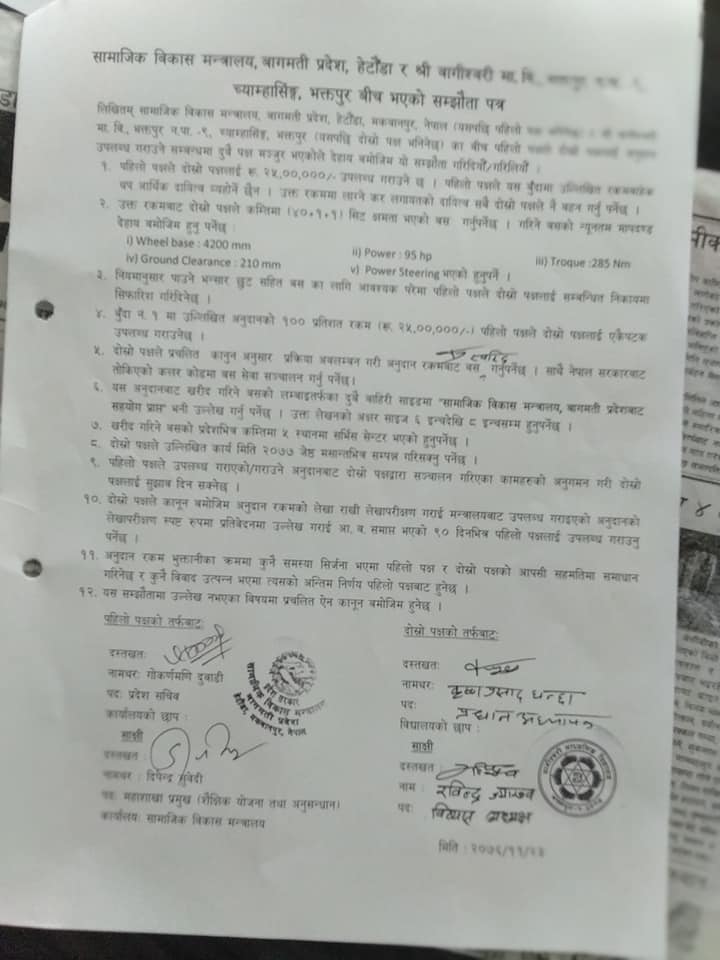 सामाजिक विकास मन्त्रालय, बागमती प्रदेश, हेटौंडा र श्री वागीश्वरी मा. वि.,
च्याम्हासिंह, भक्तपुर बीच भएको सम्झौता पत्र
लिखितम् सामाजिक विकास मन्त्रालय, बागमती प्रदेश, हेटौंडा, मकवानपुर, नेपाल (यसपछि पहिलो
मा. वि., भक्तपुर न.पा. -९, च्याम्हासिंह, भक्तपुर (यसपछि दोस्रो पक्ष भनिनेछ) का बीच पहिलो
उपलब्ध गराउने सम्बन्धमा दुवै पक्ष मञ्जुर भएकोले देहाय बमोजिम यो सम्झौता गरिदियौं/गरिलियौं ।
१. पहिलो पक्षले दोस्रो पक्षलाई रू. २५,००,०००/- उपलब्ध गराउने छ । पहिलो पक्षले यस बुँदामा उल्लिखित रकमबाहेक
थप आर्थिक दायित्व व्यहोर्ने छैन । उक्त रकममा लाग्ने कर लगायतको दायित्व सबै दोस्रो पक्षले नै वहन गर्नु पर्नेछ ।
२. उक्त रकमबाट दोस्रो पक्षले कम्तिमा (४०+१+१) सिट क्षमता भएको बस गर्नुपर्नेछ । गरिने बसको न्यूनतम मापदण्ड
देहाय बमोजिम हुनु पर्नेछ :
i) Wheel base : 4200 mm ii) Power : 95 hp iii) Troque :285 Nm
iv) Ground Clearance : 210 mm v) Power Steering भएको हुनुपर्ने ।
३. नियमानुसार पाउने भन्सार छुट सहित बस का लागि आवश्यक परेमा पहिलो पक्षले दोस्रो पक्षलाई सम्बन्धित निकायमा
सिफारिश गरिदिनेछ ।
४. बुँदा नं. १ मा उल्लिखित अनुदानको १०० प्रतिशत रकम (रू. २५,००,०००/-) पहिलो पक्षले दोस्रो पक्षलाई एकैपटक
उपलब्ध गराउनेछ ।
५. दोस्रो पक्षले प्रचलित कानुन अनुसार प्रक्रिया अवलम्बन गरी अनुदान रकमबाट बस खरिद गर्नुपर्नेछ । साथै नेपाल सरकारबाट
तोकिएको कलर कोडमा बस सेवा सञ्चालन गर्नु पर्नेछ।
६. यस अनुदानबाट खरीद गरिने बसको लम्बाइतर्फका दुवै बाहिरी साइडमा "सामाजिक विकास मन्त्रालय, बागमती प्रदेशबाट
सहयोग प्राप्त" भनी उल्लेख गर्नु पर्नेछ । उक्त लेखनको अक्षर साइज ६ इन्चदेखि ८ इन्चसम्म हुनुपर्नेछ ।
७. खरीद गरिने बसको प्रदेशभित्र कम्तिमा ५ स्थानमा सर्भिस सेन्टर भएको हुनुपर्नेछ ।
८. दोस्रो पक्षले उल्लिखित कार्य मिति २०७७ जेष्ठ मसान्तभित्र सम्पन्न गरिसक्नु पर्नेछ ।
९. पहिलो पक्षले उपलब्ध गराएको/गराउने अनुदानबाट दोस्रो पक्षद्वारा सञ्चालन गरिएका कामहरुको अनुगमन गरी दोस्रो
पक्षलाई सुझाव दिन सक्नेछ ।
१०. दोस्रो पक्षले कानून बमोजिम अनुदान रकमको लेखा राखी लेखापरीक्षण गराई मन्त्रालयबाट उपलब्ध गराइएको अनुदानको
लेखापरीक्षण स्पष्ट रुपमा प्रतिवेदनमा उल्लेख गराई आ. व. समाप्त भएको ९० दिनभित्र पहिलो पक्षलाई उपलब्ध गराउनु
पर्नेछ ।
११. अनुदान रकम भुक्तानीका क्रममा कुनै समस्या सिर्जना भएमा पहिलो पक्ष र दोस्रो पक्षको आपसी सहमतिमा समाधान
गरिनेछ र कुनै विवाद उत्पन्न भएमा त्यसको अन्तिम निर्णय पहिलो पक्षबाट हुनेछ ।
१२. यस सम्झौतामा उल्लेख नभएका विषयमा प्रचलित ऐन कानून बमोजिम हुनेछ ।
पहिलो पक्षको तर्फबाटः
दस्तखतः
नामथरः गोकर्णमणि दुवाडी
पदः प्रदेश सचिव
कार्यालयको छाप :
साक्षी
दस्तखत :
नामथर : दिपेन्द्र सुवेदी
पदः महाशाखा प्रमुख (शैक्षिक योजना तथा अनुसन्धान)
कार्यालयः सामाजिक विकास मन्त्रालय
प्रदेश सरकार
सामाजिक विकास मन्त्रालय
बागमती प्रदेश
हेटौंडा, मकवानपुर, नेपाल
दोस्रो पक्षको तर्फबाटः
दस्तखतः
नामथरः कृष्ण प्रसाद धन्छा
पदः प्रधानअध्यापक
विद्यालयको छाप :
साक्षी
दस्तखत :
नाम : रविन्द्र ज्याख्व
पदः विव्यस अध्यक्ष
मिति : २०७६/११/२३